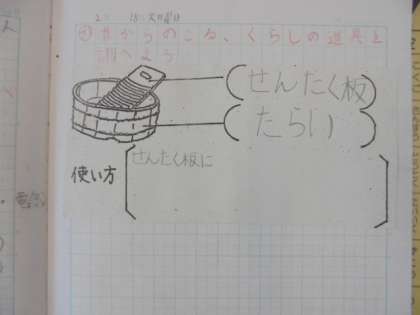 昔からのこる、くらしの道具と
調べよう
せんたく板
たらい
使い方
せんたく板に